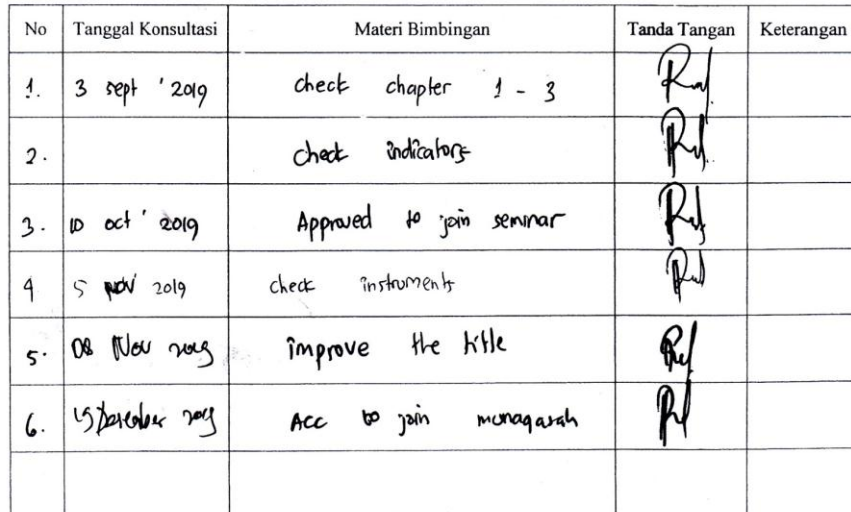 No Tanggal Konsultasi Materi Bimbingan Tanda Tangan Keterangan
1. 3 sept '2019 check chapter 1 - 3
2. check indicators
3. 10 oct '2019 Approved to join seminar
4 5 nov 2019 check instruments
5. 08 Nov 2019 improve the title
6. December 2019 Acc to join munaqasah